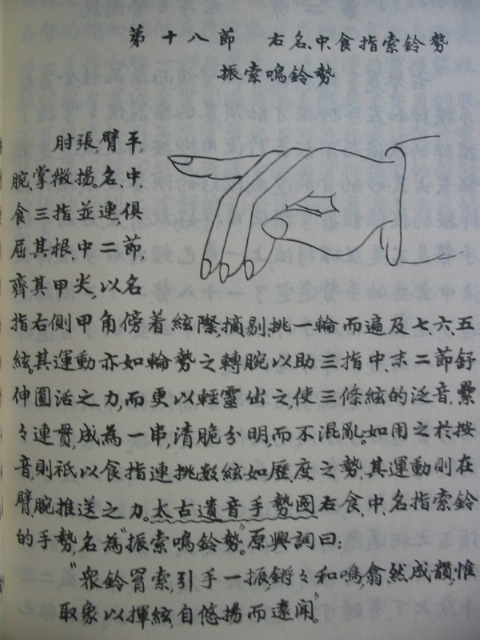 第十八節　右名、中、食指索鈴勢
振索鳴鈴勢
肘張,臂平,
腕掌微揚。名、中、
食三指並連俱
屈其根中二節,
齊其甲尖,以名
指右側甲角傍着絃際,摘剔挑一輪而遍及七、六、五
絃其運動亦如輪勢之轉腕以助三指中、末二節舒
伸圓活之力,而更以輕靈出之使三條絃的泛音,纍
々連貫,成為一串,清脆分明,而不混亂。如用之於按
音,則祇以食指連挑数絃如歷度之勢,其運動則在
臂,腕推送之力。太古遺音手勢圖右食、中、名指索鈴
的手勢名為“振索鳴鈴勢”。原興詞曰:
“眾鈴胃索,引手一振,鏘々和鳴,翕然成韻,惟
取象以揮絃,自悠揚而遠聞”。